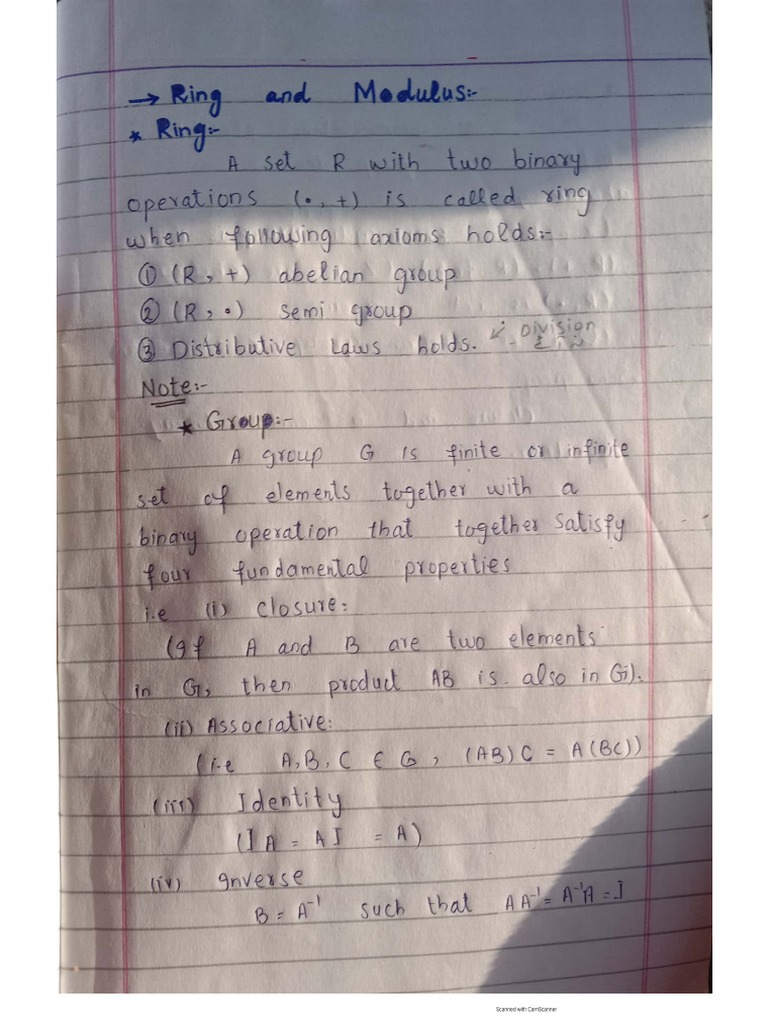 → Ring and Modulus:-
* Ring:-
A set R with two binary
operations (•, +) is called ring
when following axioms holds:-
① (R, +) abelian group
② (R, •) semi group
③ Distributive Laws holds. ↙ Division
Note:-
* Group:-
A group G is finite or infinite
set of elements together with a
binary operation that together satisfy
four fundamental properties
i.e (i) closure:
(If A and B are two elements
in G, then product AB is also in G).
(ii) Associative:
(i.e A, B, C ∈ G, (AB)C = A(BC))
(iii) Identity
(I A = A I = A)
(iv) Inverse
B = A⁻¹ such that AA⁻¹ = A⁻¹A = I
Scanned with CamScanner